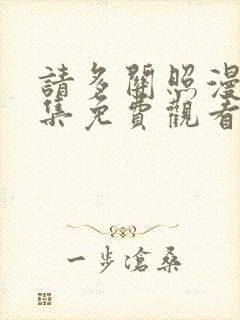 請多關照漫
集免費觀看
一步滄桑